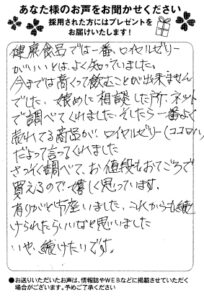 あなた様のお声をお聞かせください
採用された方にはプレゼントを
お届けいたします!
健康食品では一番、ロイヤルゼリー
がいいとは、よく知っていました。
今までは高くって飲むことが出来ません
でした。娘めに相談した所、ネット
で調べてくれました。そしたら一番よく
売れてる商品がロイヤルゼリー(ココロハ)
だよって言ってくれました
さっそく調べて、お値段もおてごろで
買えるので嬉しく思っています。
有りがとう御座いました、これからも続
けられたらいいなと思いました
いや、続けたいです。
●お送りいただいたお声は、情報誌やWEBなどに掲載させていただく
場合がございます。予めご了承ください